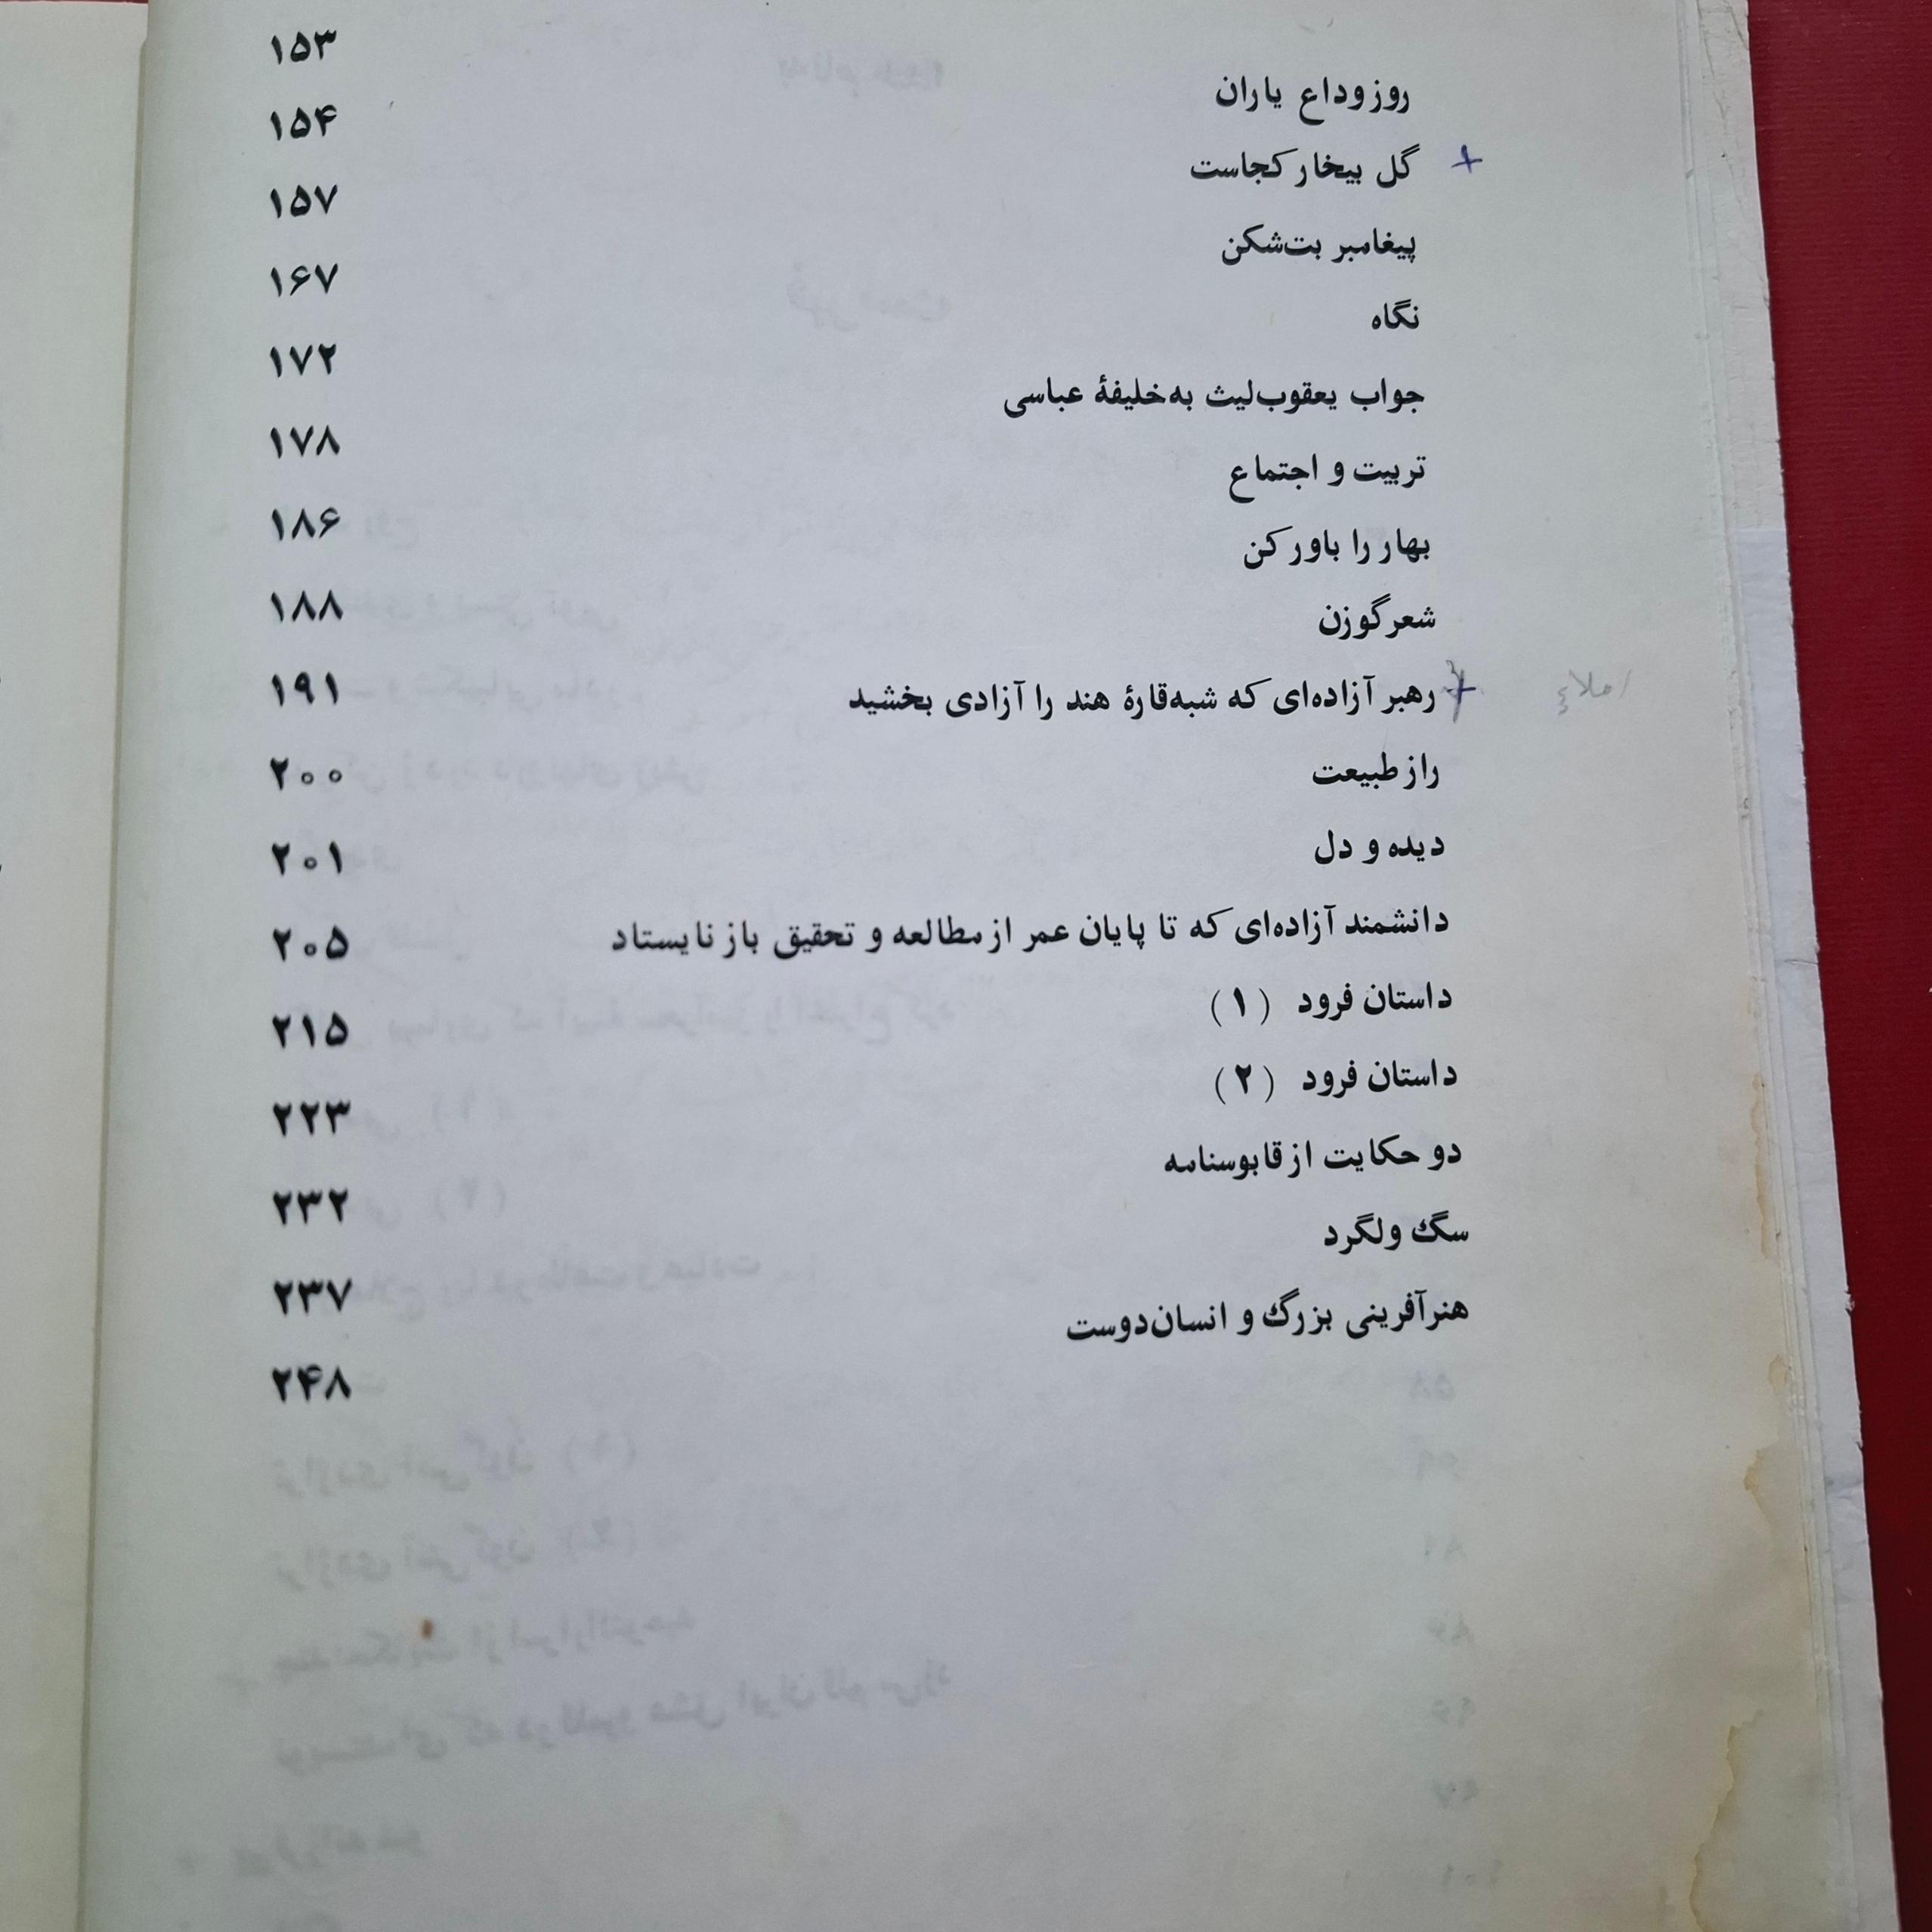 روز وداع یاران ۱۵۳
+ گل بیخار کجاست ۱۵۴
پیغامبر بت‌شکن ۱۵۷
نگاه ۱۶۷
جواب یعقوب‌لیث به‌خلیفهٔ عباسی ۱۷۲
تربیت و اجتماع ۱۷۸
بهار را باور کن ۱۸۶
شعر گوزن ۱۸۸
املاء + رهبر آزاده‌ای که شبه‌قارهٔ هند را آزادی بخشید ۱۹۱
راز طبیعت ۲۰۰
دیده و دل ۲۰۱
دانشمند آزاده‌ای که تا پایان عمر از مطالعه و تحقیق باز نایستاد ۲۰۵
داستان فرود (۱) ۲۱۵
داستان فرود (۲) ۲۲۳
دو حکایت از قابوسنامه ۲۳۲
سگ ولگرد ۲۳۷
هنرآفرینی بزرگ و انسان‌دوست ۲۴۸